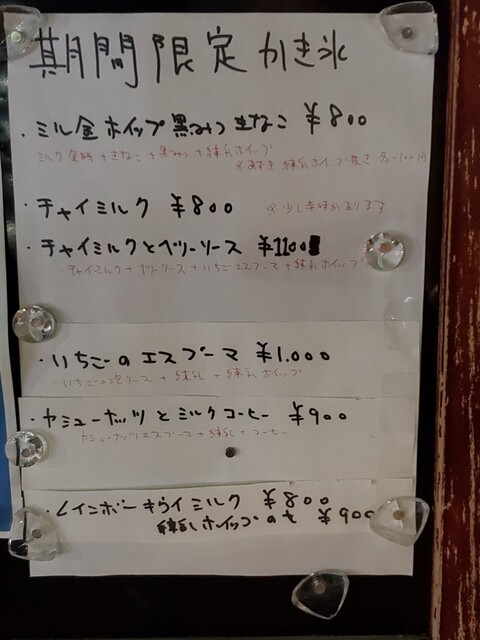 期間限定かき氷
・ミルク金ホイップ黒みつきなこ ¥800
ミルク金時+きなこ+黒みつ+練乳ホイップ
※あずき 練乳ホイップ抜き 各-100円
・チャイミルク ¥800 ※少し辛味があります
・チャイミルクとベリーソース ¥1100
チャイミルク+ベリーソース+いちごエスプーマ+練乳ホイップ
・いちごのエスプーマ ¥1.000
・いちごの泡ソース+練乳+練乳ホイップ
・カシューナッツとミルクコーヒー ¥900
カシューナッツエスプーマ+練乳+コーヒー
・レインボーキウイミルク ¥800
練乳ホイップのせ ¥900